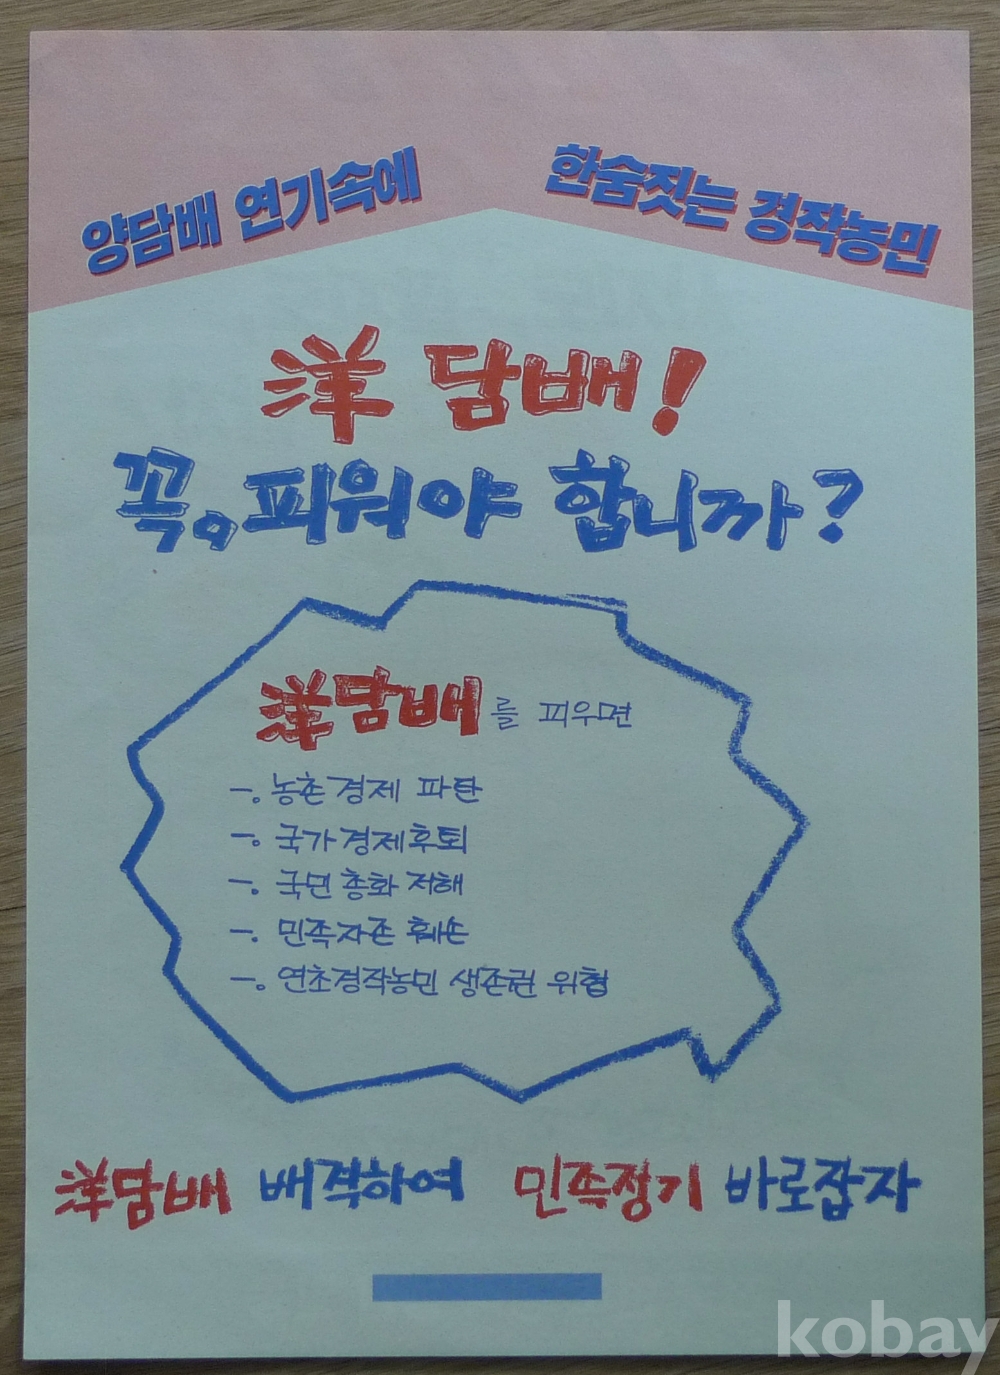 양담배 연기속에 한숨짓는 경작농민
洋담배!
꼭, 피워야 합니까?
洋담배를 피우면
-. 농촌경제 파탄
-. 국가경제후퇴
-. 국민총화 저해
-. 민족자존 훼손
-. 연초경작농민 생존권 위협
洋담배 배격하여 민족정기 바로잡자
kobay